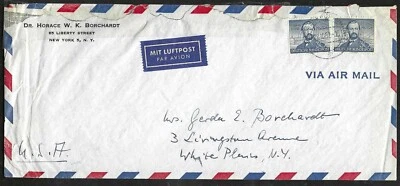 DR. HORACE W. K. BORCHARDT
95 LIBERTY STREET
NEW YORK 5, N. Y.
MIT LUFTPOST
PAR AVION
VIA AIR MAIL
Mrs. Gerda E. Borchardt
3 Livingston Avenue
White Plains, N.Y.
U.S.A.